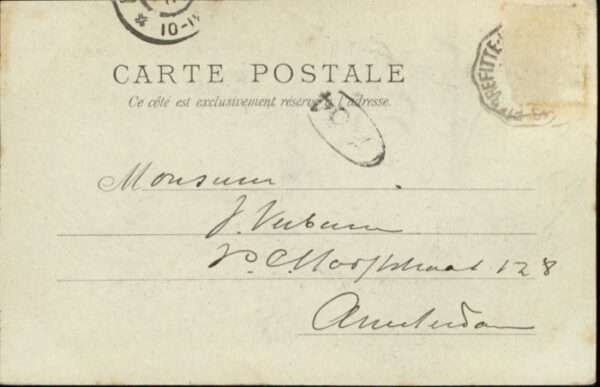 10-11
CARTE POSTALE
Ce côté est exclusivement réservé à l'adresse.
REFITTE
Monsieur
J. Verbeum
P.C. Hooftstraat 128
Amsterdam